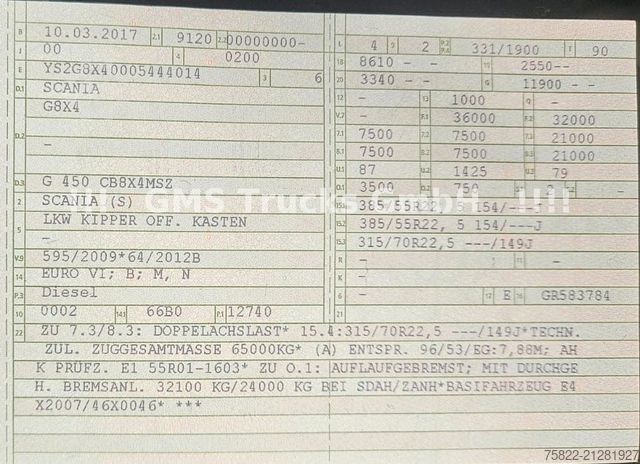 B 10.03.2017 2.1 9120 2.2 00000000-
J 00 4 0200
E YS2G8X40005444014 3 6
D.1 SCANIA
G8X4
D.2
-
D.3 G 450 CB8X4MSZ
2 SCANIA (S)
5 LKW KIPPER OFF. KASTEN
-
V.9 595/2009*64/2012B
14 EURO VI; B; M, N
P.3 Diesel
10 0002 14.1 66B0 P.1 12740
L 4 9 2 P.2 P.4 331/1900 T 90
18 8610 - - 19 2550--
20 3340 - - G 11900 - -
12 - 13 1000 Q -
V.7 - F.1 36000 F.2 32000
7.1 7500 7.2 7500 7.3 21000
8.1 7500 8.2 7500 8.3 21000
U.1 87 U.2 1425 U.3 79
O.1 3500 O.2 750 S.1 2 S.2 -
15.1 385/55R22, 5 154/---J
15.2 385/55R22, 5 154/---J
15.3 315/70R22,5 ---/149J
R - 11 -
K -
6 - 17 E 16 GR583784
21
22 ZU 7.3/8.3: DOPPELACHSLAST* 15.4:315/70R22,5 ---/149J*TECHN.
ZUL. ZUGGESAMTMASSE 65000KG* (A) ENTSPR. 96/53/EG:7,88M; AH
K PRÜFZ. E1 55R01-1603* ZU O.1: AUFLAUFGEBREMST; MIT DURCHGE
H. BREMSANL. 32100 KG/24000 KG BEI SDAH/ZANH*BASIFAHRZEUG E4
X2007/46X0046* ***
!!! GMS Trucks GmbH !!!!
75822-21281927